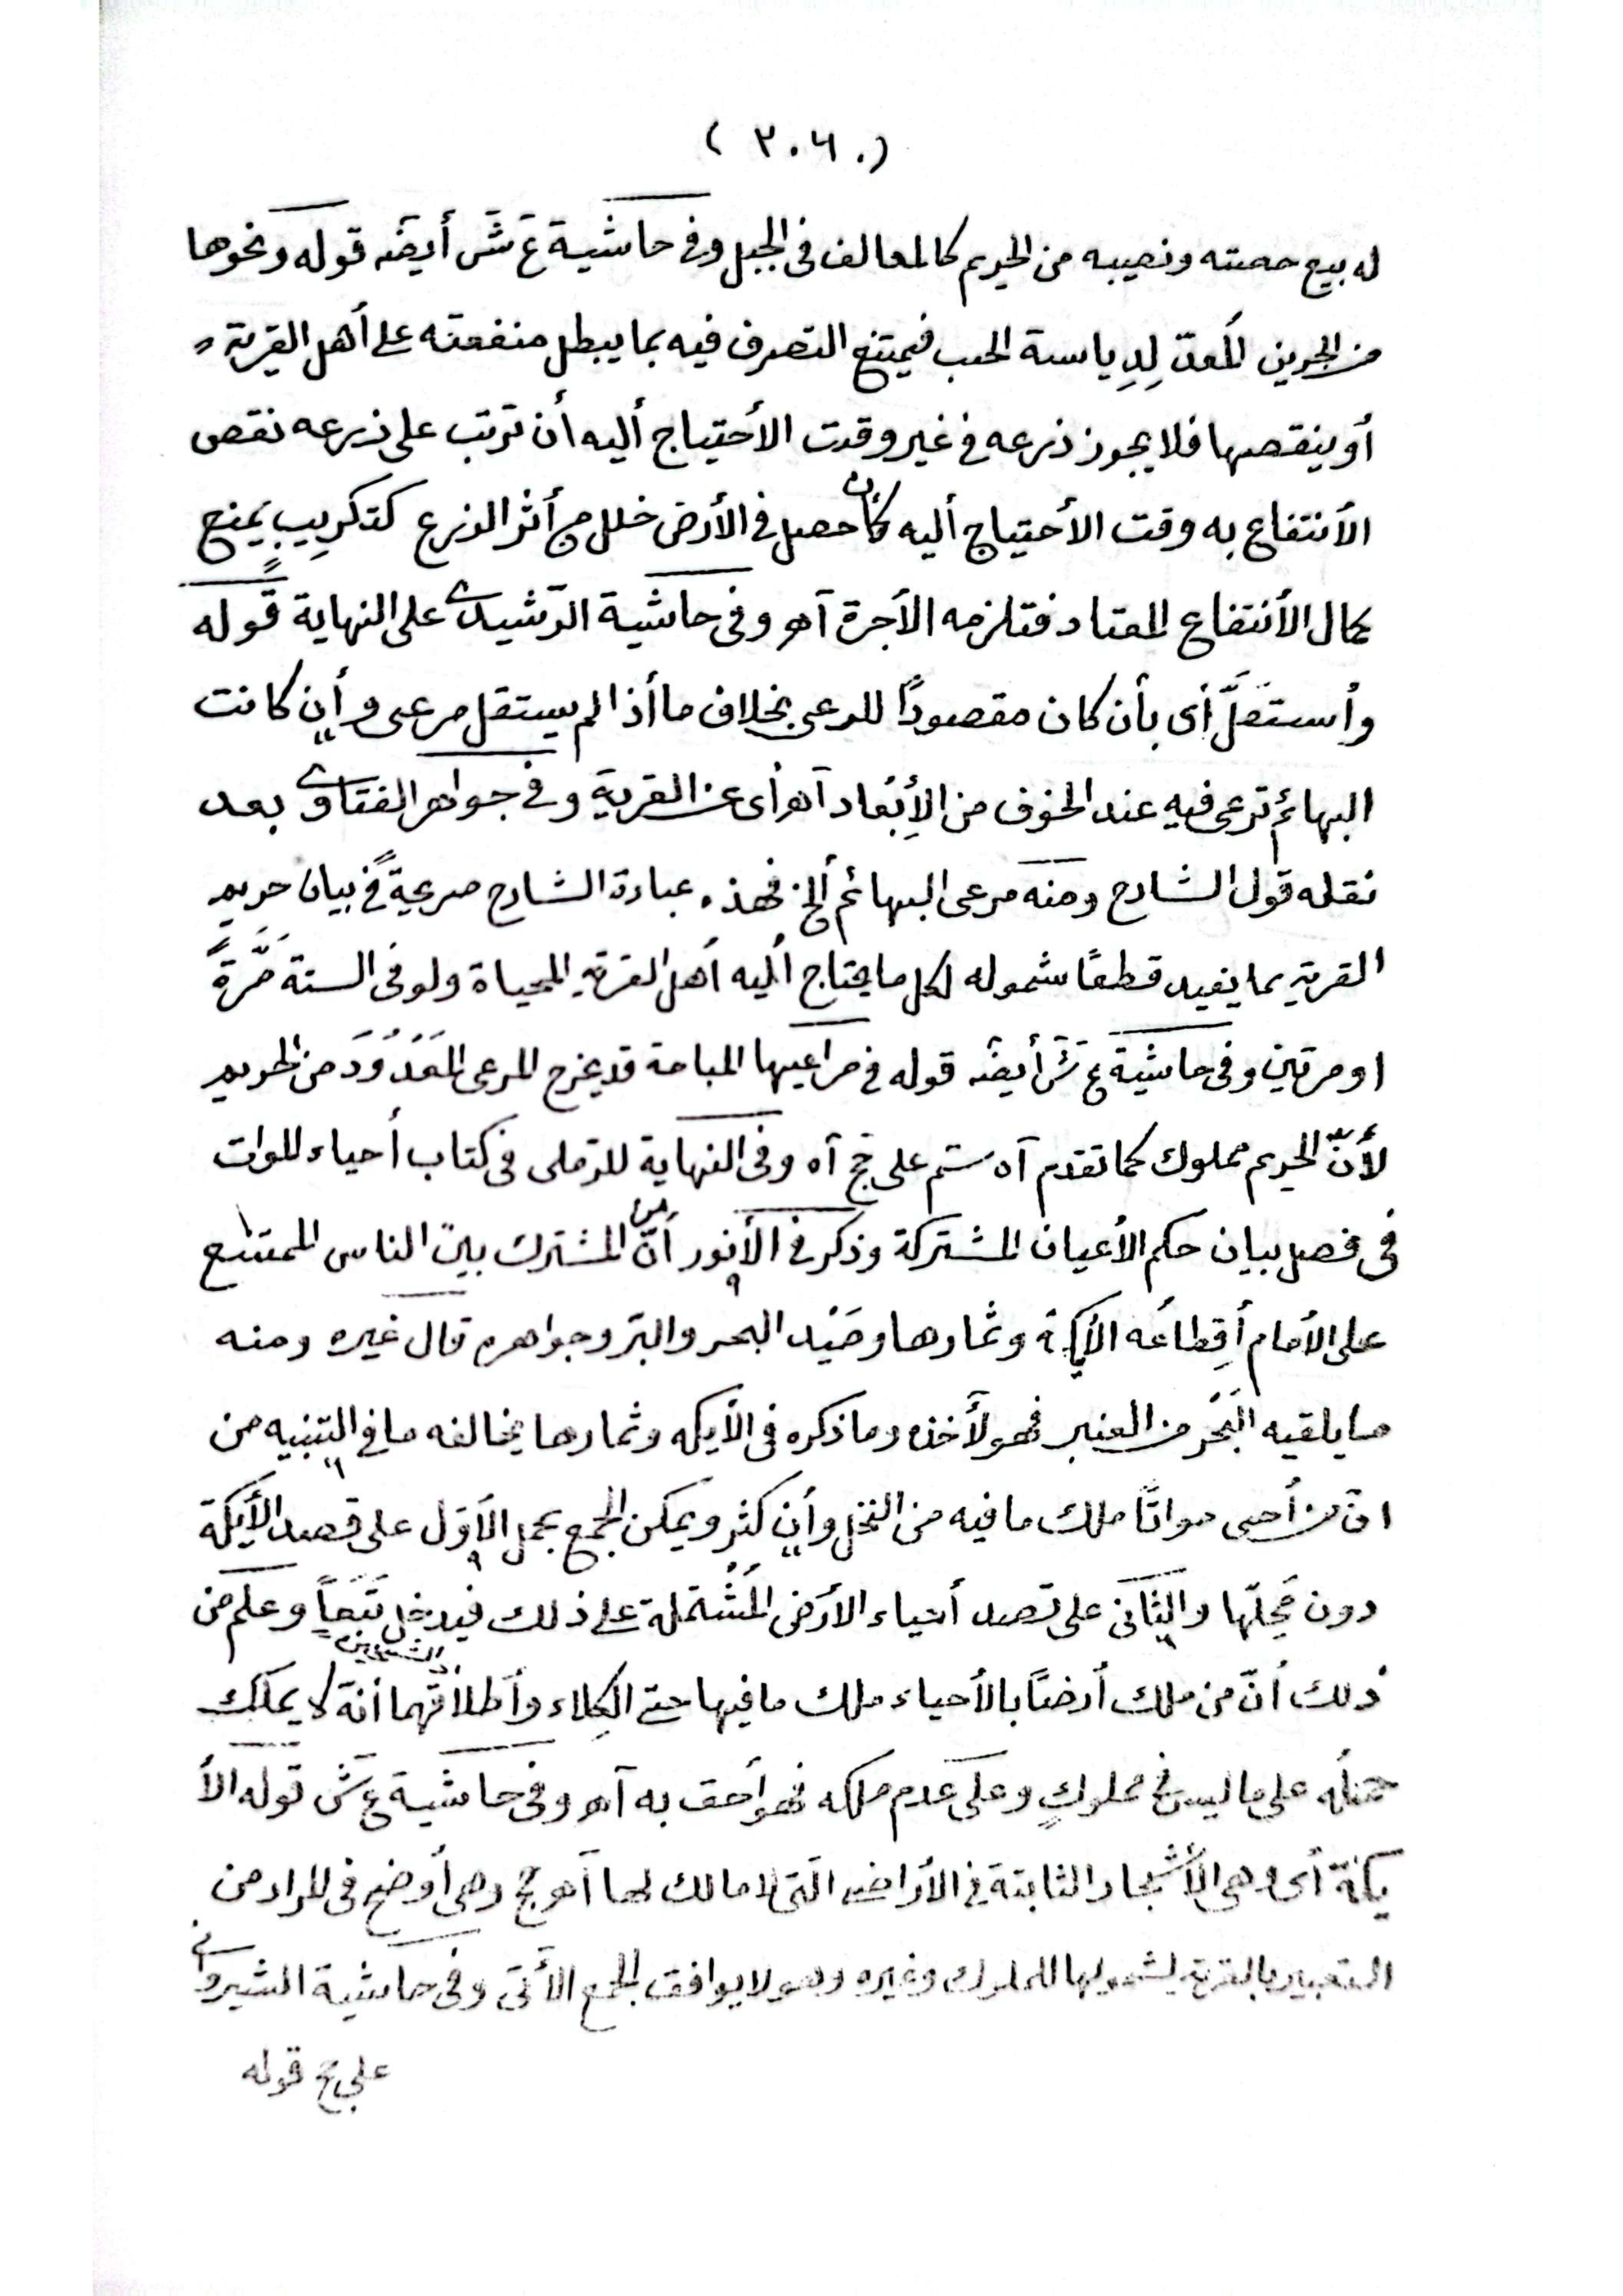 ( ٢٠٦٠ )
له بيع حصته ونصيبه من الحريم كالمعالف فى الجبل وفى حاشية ع ش أيضًا قوله ونحوها
من الجرين المُعدّ لِدِياسة الحب فيمتنع التصرف فيه بما يبطل منفعته على أهل القرية
أو ينقصها فلا يجوز زرعه فى غير وقت الأحتياج أليه أن ترتب على زرعه نقص
الأنتفاع به وقت الأحتياج أليه كأن حصل فى الأرض خلل من أثر الزرع كتكريبٍ يمنع
كمال الأنتفاع المعتاد فتلزمه الأجرة آهـ وفى حاشية الرّشيدى على النهاية قوله
وأستقَلَّ أى بأن كان مقصودًا للرعى بخلاف ما أذا لم يستقل مرعى وأن كانت
البهائم ترعى فيه عند الخوف من الأِبْعاد آهـ أى عن القرية وفى جواهر الفتاوى بعد
نقله قول الشارح ومنه مرعى البهائم ألخ فهذه عبارة الشارح صريحةً فى بيان حريم
القرية بما يفيد قطعًا شموله لكل ما يحتاج أليه أهل القرية المحياة ولو فى السنة مَرَّةً
او مرتين وفى حاشية ع ش أيضًا قوله فى مراعيها المباحة قد يخرج المرعى المَعْدُودَ من الحريم
لأنّ الحريم مملوك كما تقدم آه سم على حج آه وفى النهاية للرملى فى كتاب أحياء الموات
فى فصل بيان حكم الأعيان المشتركة وذكر فى الأنور أنّ من المشترك بين الناس الممتنع
على الأمام أِقطاعُه الأيكة وثمارها وصَيْد البحر والبرّ وجواهره قال غيره ومنه
ما يلقيه البَحْر من العنبر فهو لأخذه وما ذكره فى الأيكه وثمارها يخالفه ما فى التنبيه من
انّ من أحيى مواتًا ملك ما فيه من النخل وأن كثر ويمكن الجمع بحمل الأوّل على قصد الأيكة
دون مَحِلّها والثّانى على قصد أحياء الأرض المُشْتملة على ذلك فيدخل تَبَعاً وعلم من
ذلك أنّ من ملك أرضًا بالأحياء ملك ما فيها حتى الكلاء وأطلاقهما الشيخين أنّه لا يملك
حملُه على ما ليس فى مملوكٍ وعلى عدم ملكه فهو أحق به آهـ وفى حاشية ع ش قوله الأ
يكة أى وهى الأشجار الثابتة فى الأراضى التى لا مالك لها آهـ حج وهى أوضح فى المراد من
التعبير بالقرية لشمولها للملوك وغيره وهو لا يوافق الجمع الأتى وفى حاشية الشيروانى
على حج قوله